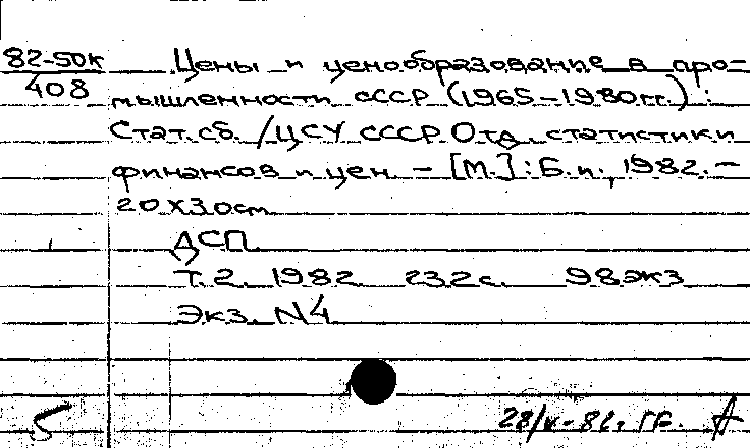 82-50к Цены и ценообразование в про-
408 мышленности СССР (1965-1980гг.):
Стат. сб. /ЦСУ СССР Отд. статистики
финансов и цен. - [М.]: Б.и., 1982. -
20х30см
ДСП.
Т.2. 1982 232с. 98экз
Экз. N4
5
28/V-82г.